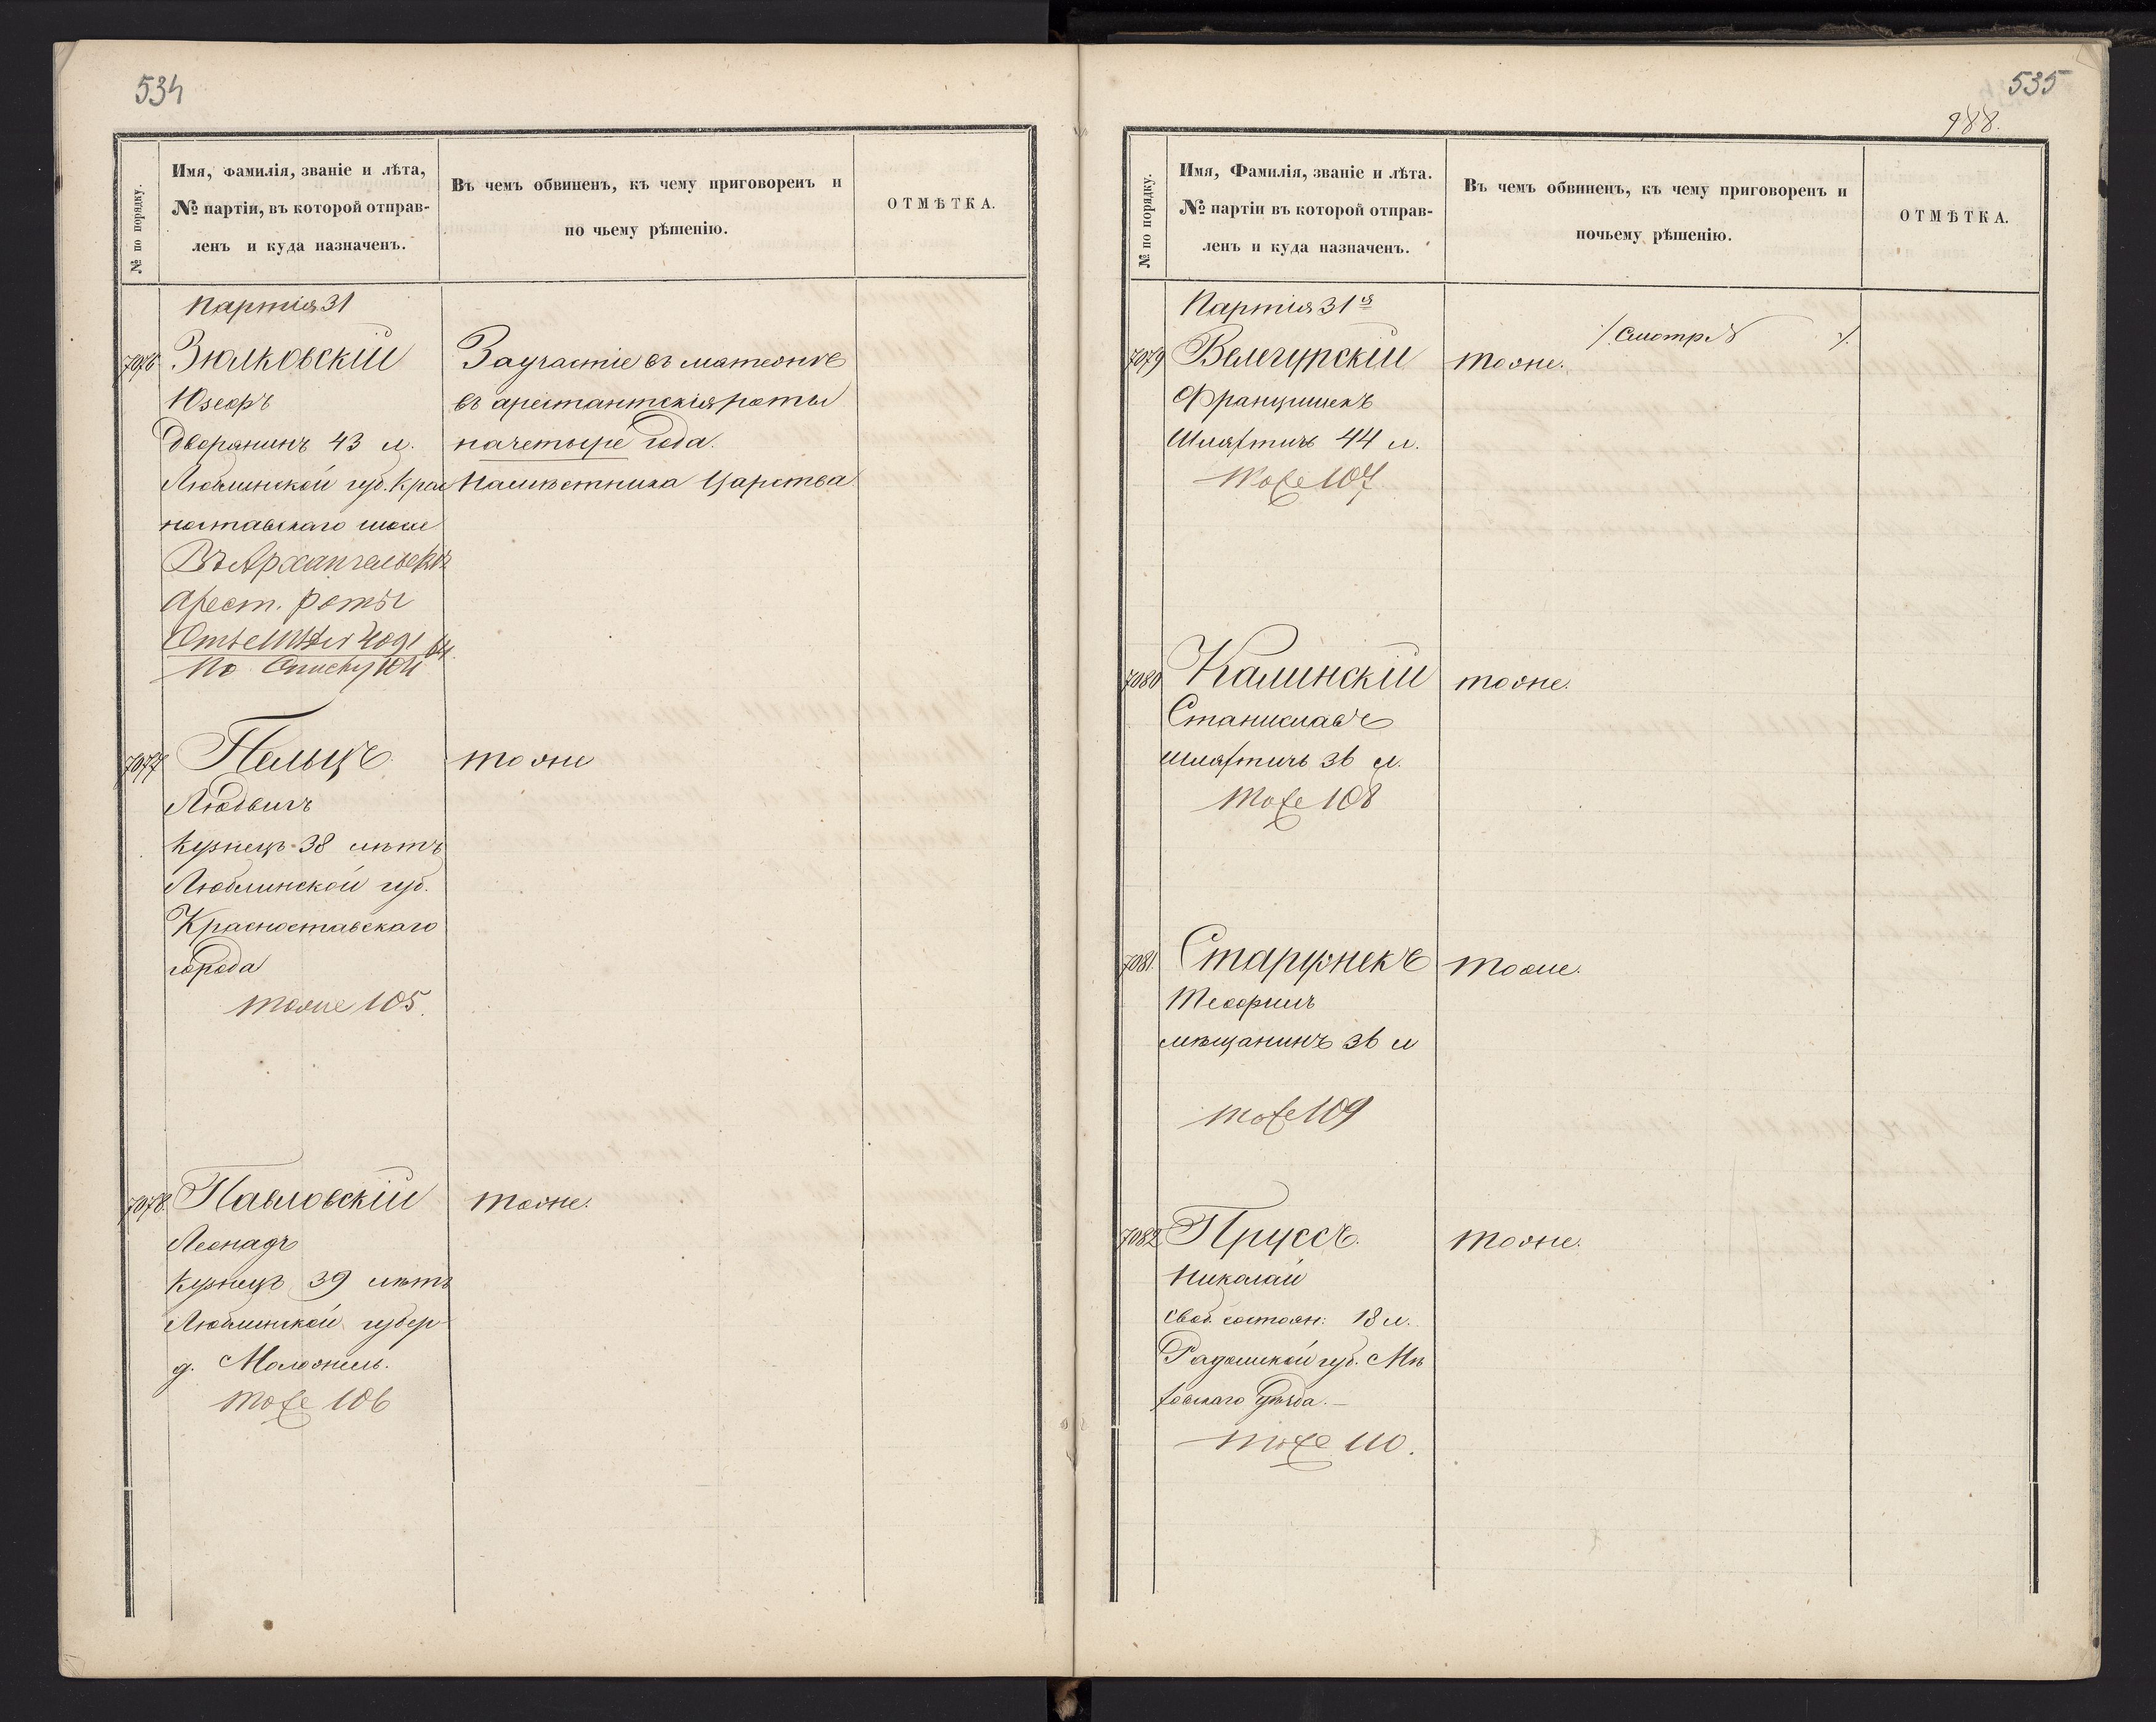 534
№ по порядку.
Имя, фамилія, званіе и лѣта,
№ партіи, въ которой отправ-
ленъ и куда назначенъ.
Въ чемъ обвиненъ, къ чему приговоренъ и
по чьему рѣшенію.
ОТМѢТКА.
Партія 31
7076 Зюлковскій
Юзефъ
дворянинъ 43 л.
Люблинской губ. Крас
ноставскаго
Въ Архангельскъ
Арест. роты
По Списку 104
За участіе въ мятежѣ
въ арестантскія роты
на четыре года.
Намѣстника Царства
7077 Пельцъ
тоже
Людвигъ
кузнецъ 38 лѣтъ
Люблинской губ.
Красноставскаго
города
тоже 105.
7078. Павловскій
тоже.
Леонадъ
кузнецъ 39 лѣтъ
Люблинской губер
д.
тоже 106
535
988.
№ по порядку.
Имя, Фамилія, званіе и лѣта.
№ партіи въ которой отправ-
ленъ и куда назначенъ.
Въ чемъ обвиненъ, къ чему приговоренъ и
почьему рѣшенію.
ОТМѢТКА.
Партія 31я
/. Смотр. № /.
7079 Велегурскій
тоже.
Францишекъ
Шляхтичъ 44 л.
Тоже 107
7080 Калинскій
тоже.
Станиславъ
шляхтичъ 36 л.
тоже 108
7081. Старужнекъ
тоже.
Теофилъ
мѣщанинъ 36 л
тоже 109
7082 Пруссъ.
тоже.
Николай
Своб. состоян: 18 л.
Радомской губ. Мѣ
ховскаго уѣзда. —
тоже 110.